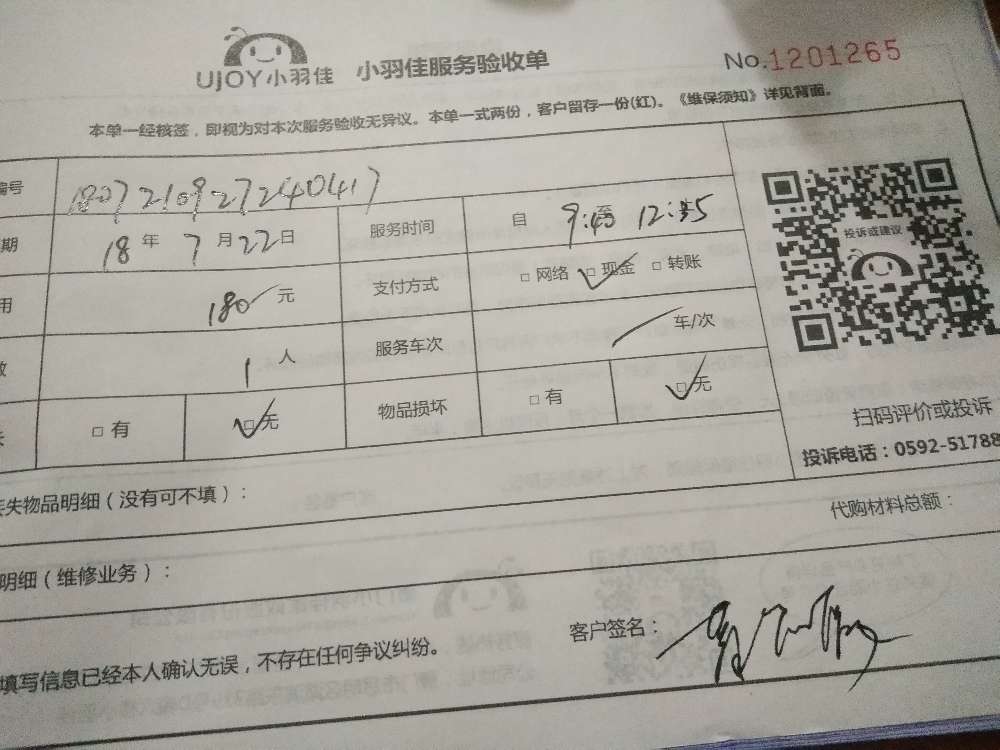 UJOY小羽佳 小羽佳服务验收单 No.1201265
本单一经核签，即视为对本次服务验收无异议。本单一式两份，客户留存一份(红)。《维保须知》详见背面。
编号 1807210927240417
期 18年7月22日 服务时间 自 9:45 至 12:45
用 180元 支付方式 □网络 □现金 □转账
1人 服务车次 车/次
□有 □无 物品损坏 □有 □无
投诉或建议
扫码评价或投诉
投诉电话：0592-51788
失物品明细（没有可不填）：
代购材料总额：
明细（维修业务）：
填写信息已经本人确认无误，不存在任何争议纠纷。 客户签名：